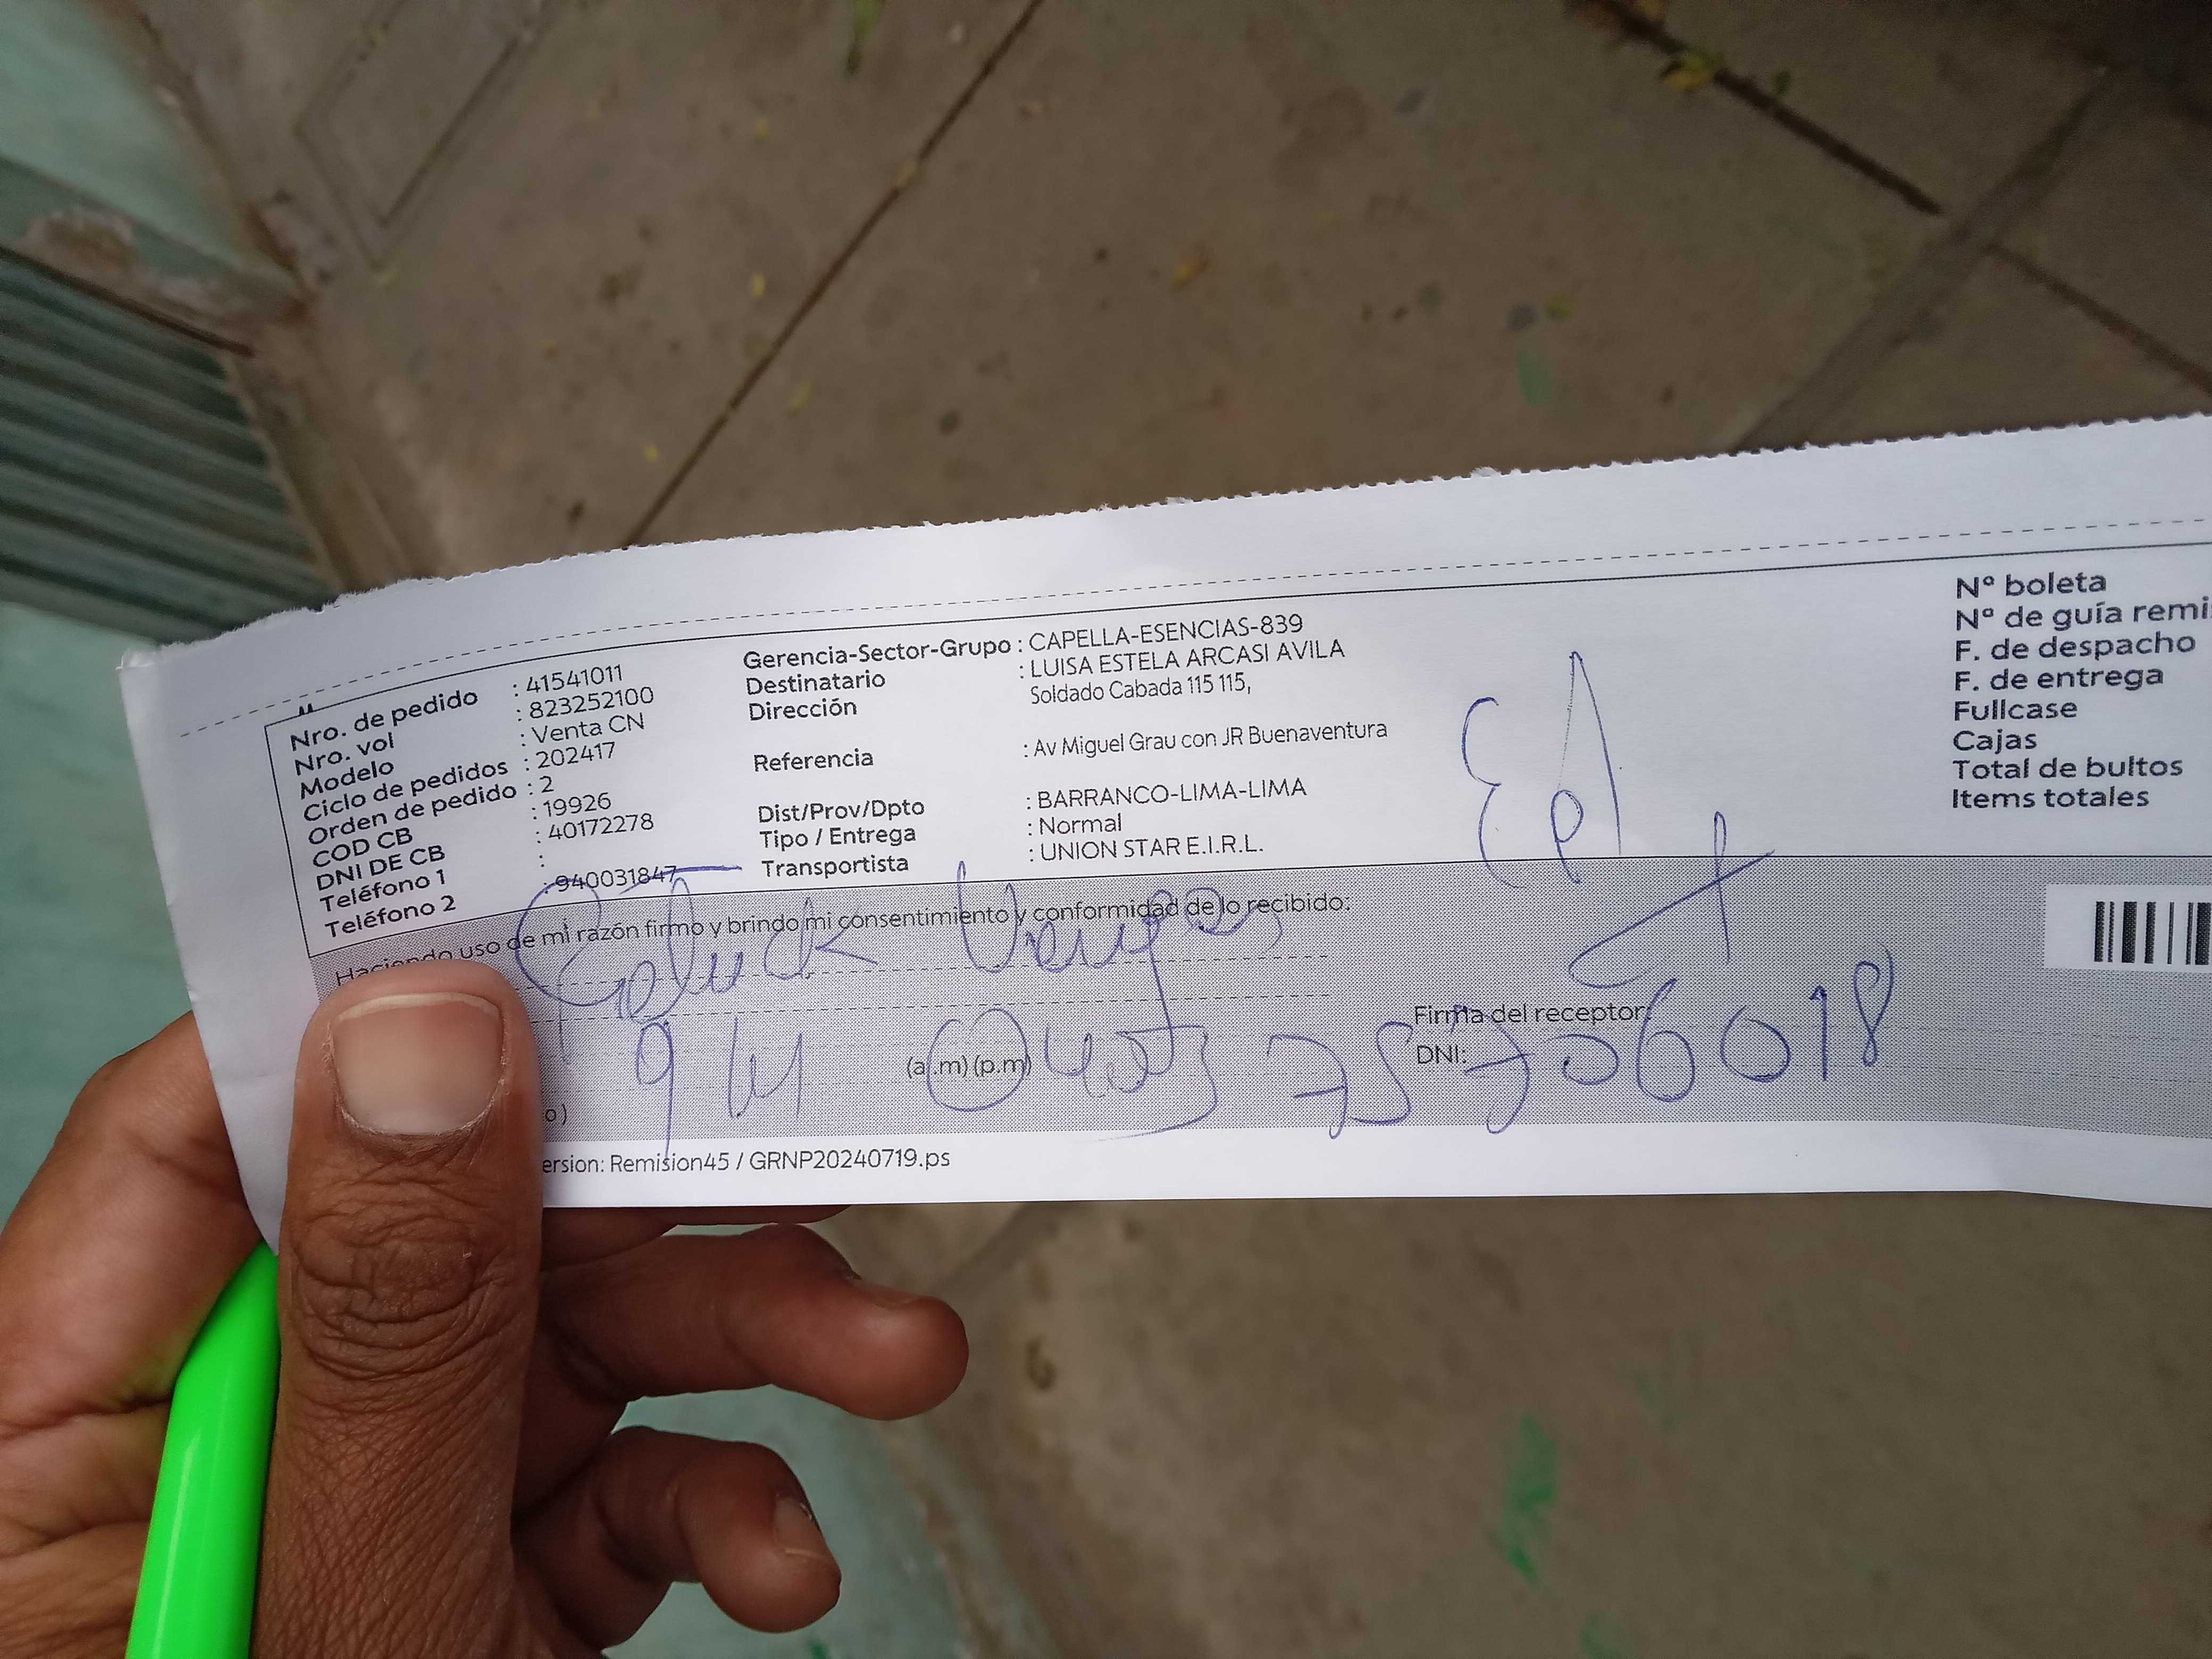 Nro. de pedido : 41541011
Nro. vol : 823252100
Modelo : Venta CN
Ciclo de pedidos : 202417
Orden de pedido : 2
COD CB : 19926
DNI DE CB : 40172278
Teléfono 1 :
Teléfono 2 : 940031847
Gerencia-Sector-Grupo : CAPELLA-ESENCIAS-839
Destinatario : LUISA ESTELA ARCASI AVILA
Dirección Soldado Cabada 115 115,
Referencia : Av Miguel Grau con JR Buenaventura
Dist/Prov/Dpto : BARRANCO-LIMA-LIMA
Tipo / Entrega : Normal
Transportista : UNION STAR E.I.R.L.
Nº boleta
Nº de guía remi
F. de despacho
F. de entrega
Fullcase
Cajas
Total de bultos
Items totales
Haciendo uso de mi razón firmo y brindo mi consentimiento y conformidad de lo recibido:
Firma del receptor:
(a.m) (p.m)
DNI: 75706018
o)
ersion: Remision45 / GRNP20240719.ps